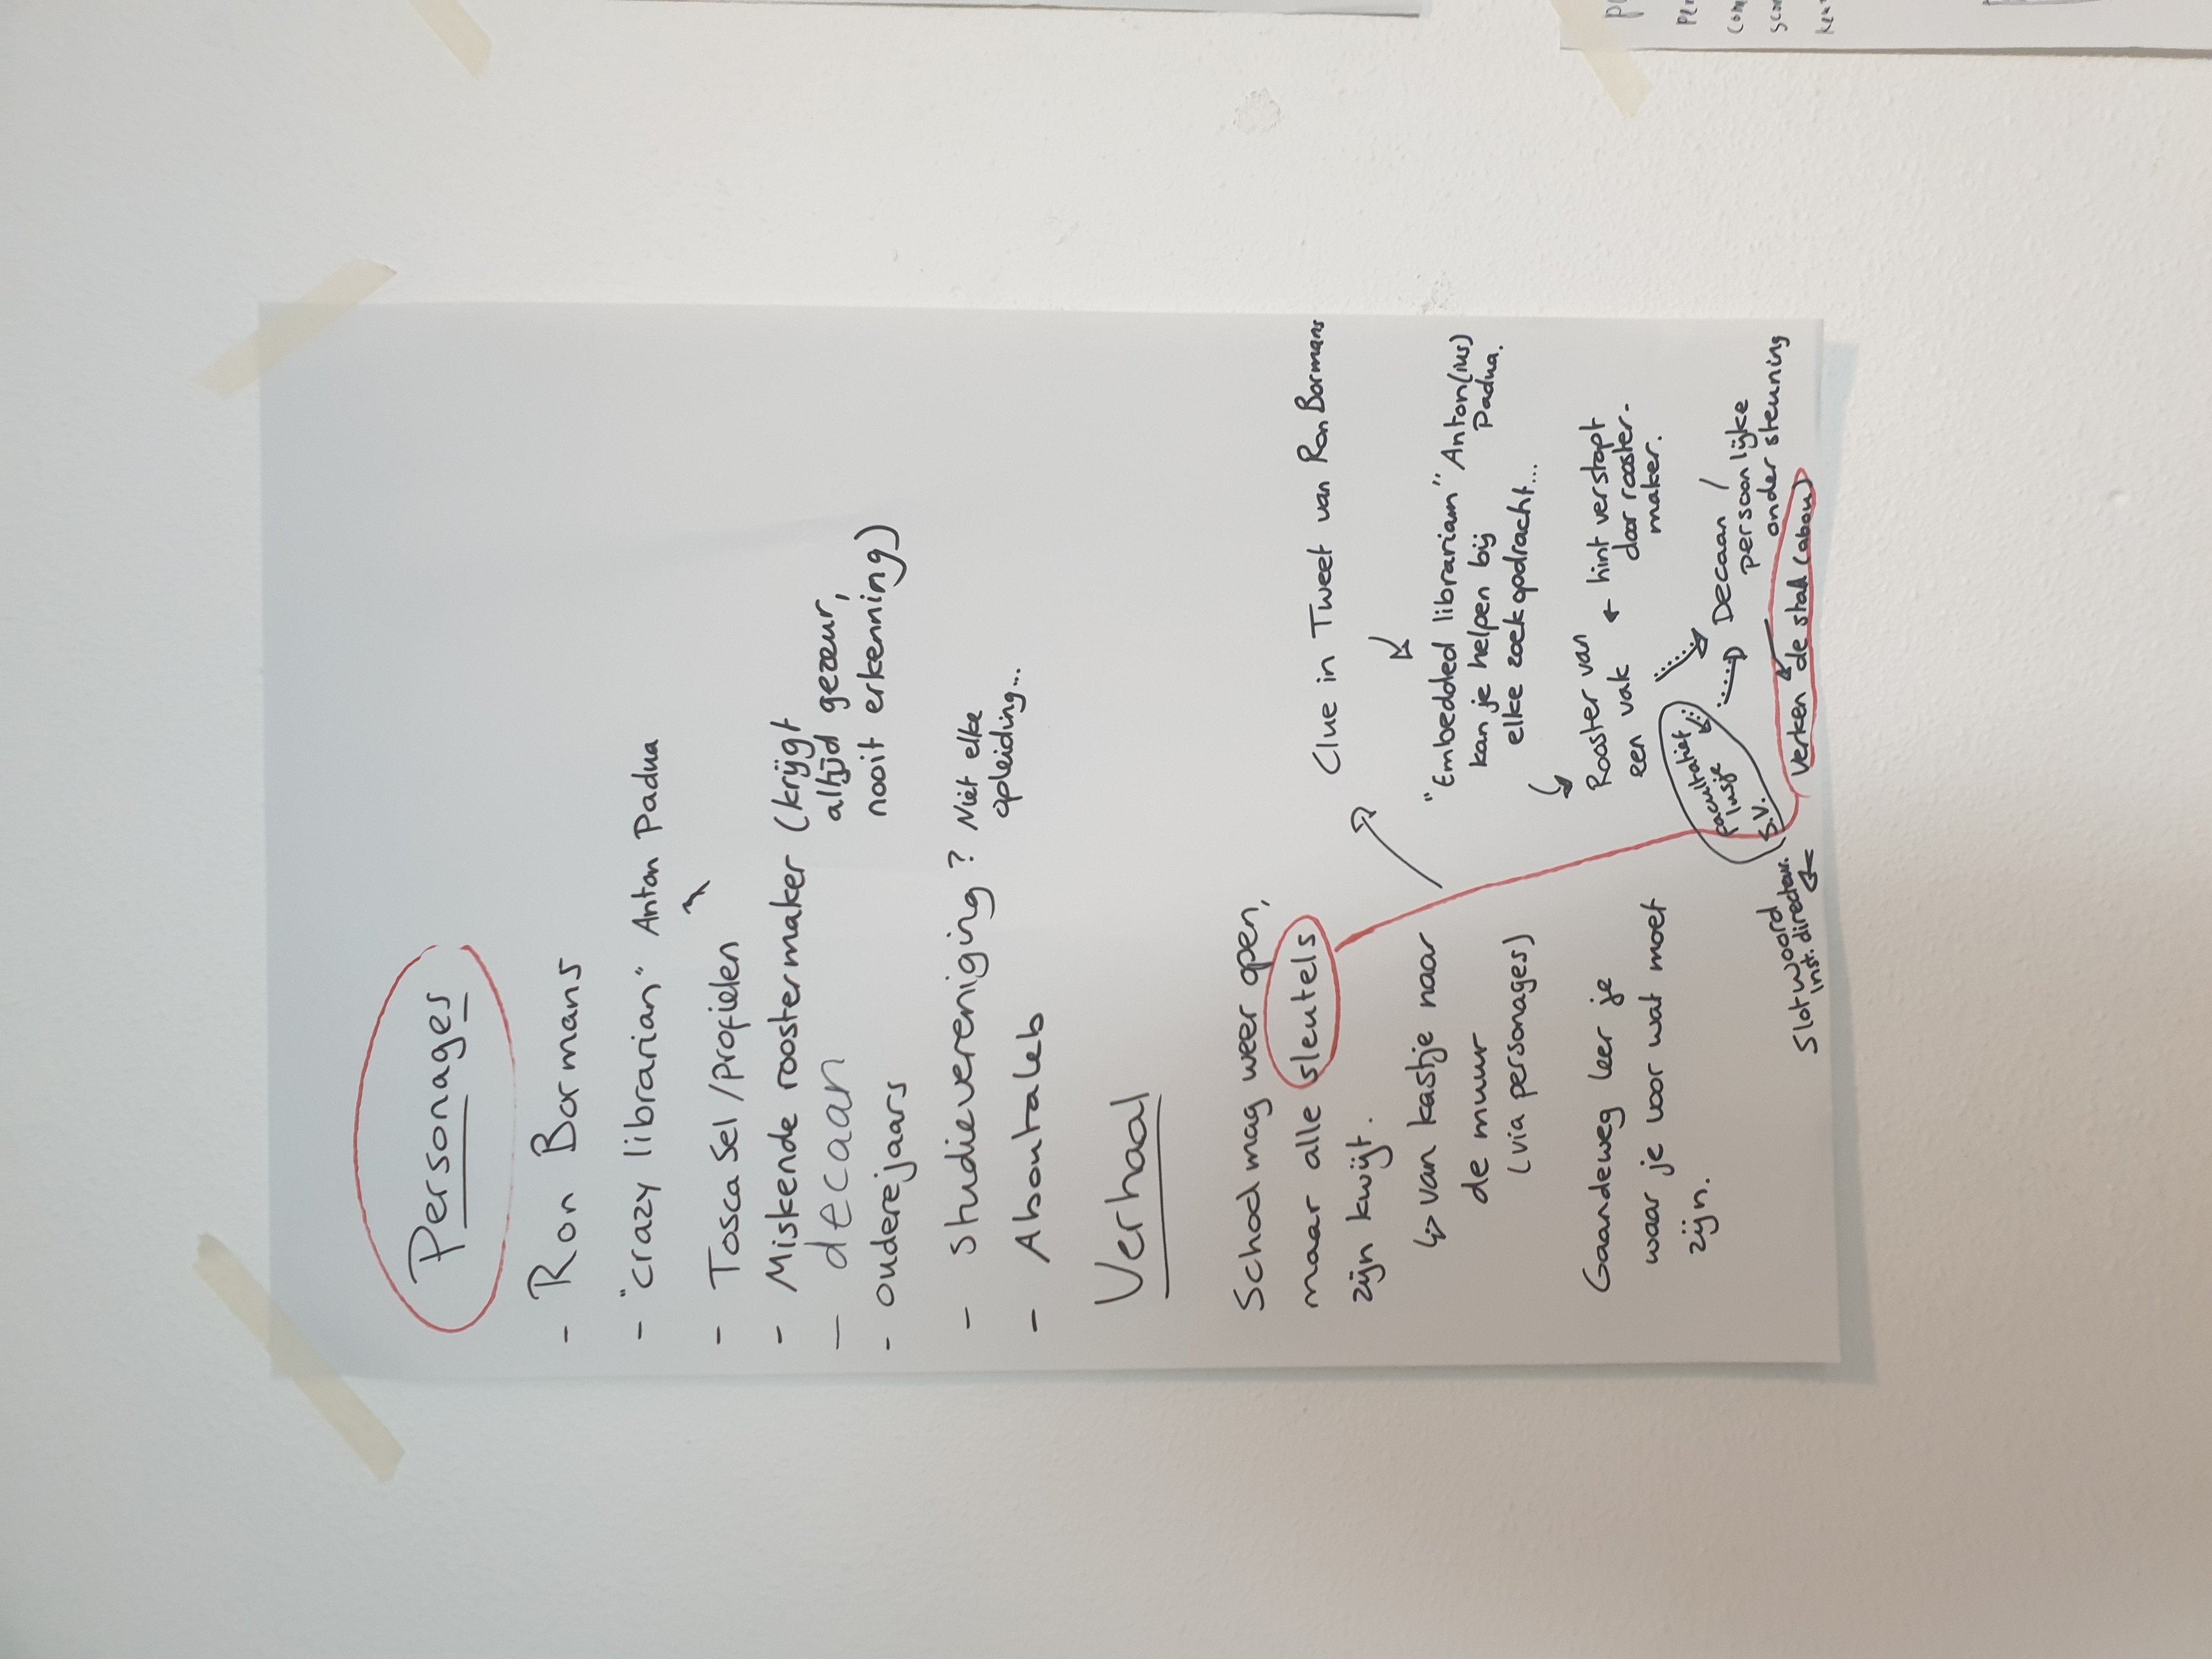 Personages
- Ron Bormans
- "crazy librarian" Anton Padua
- Tosca Sel /profielen
- Miskende roostermaker (krijgt
altijd gezeur,
nooit erkenning)
- decaan
- ouderejaars
- Studievereniging? Niet elke
opleiding...
- Aboutaleb
Verhaal
School mag weer open,
maar alle sleutels
zijn kwijt.
↳ van kastje naar
de muur
(via personages)
Gaandeweg leer je
waar je voor wat moet
zijn.
Clue in Tweet van Ron Bormans
"Embedded librariam" Anton(ius)
Padua.
kan je helpen bij
elke zoekopdracht...
Rooster van
een vak
← hint verstopt
door rooster-
maker.
facultatief
lusje
S.V.
Decaan /
persoonlijke
ondersteuning
Verken de stad (abou)
Slotwoord
Inst. directeur.